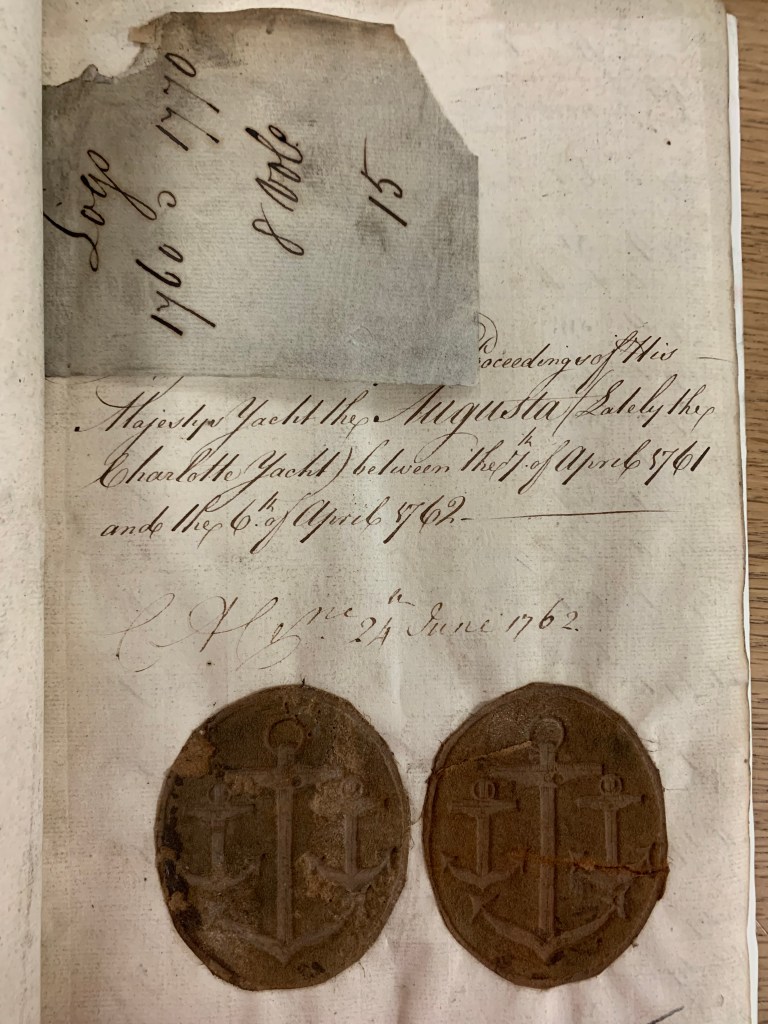 Logs
1760 to 1770
8 Vols
15
Proceedings of His
Majestys Yacht the Augusta (Lately the
Charlotte Yacht) between the 7th of April 1761
and the 6th of April 1762
24th June 1762